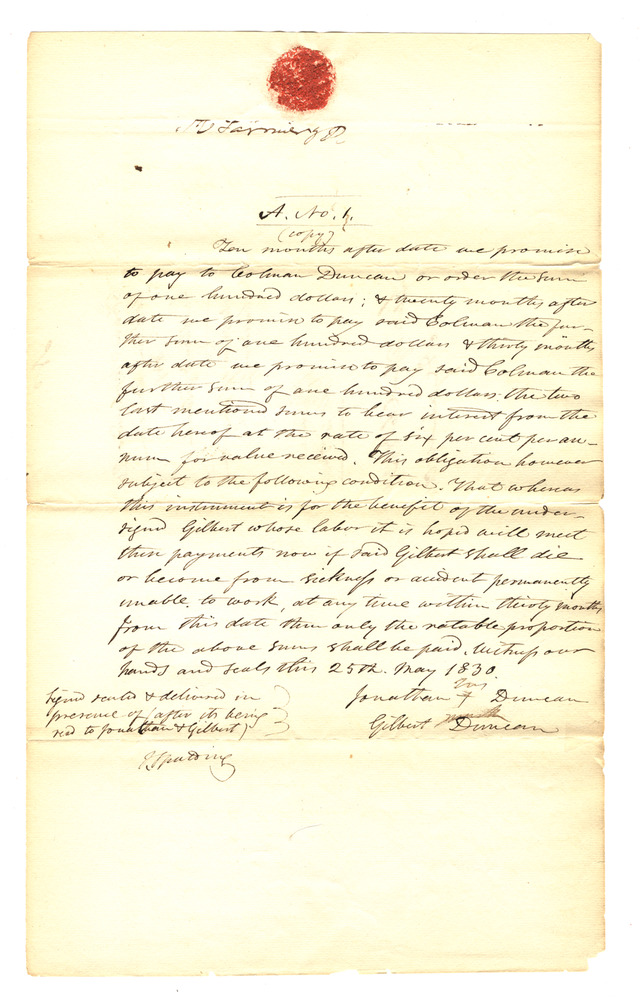 A. No. 1.
(copy)
Ten months after date we promise
to pay to Colman Duncan or order the sum
of one hundred dollars; & twenty months after
date we promise to pay said Colman the fur-
ther sum of one hundred dollars & thirty months
after date we promise to pay said Colman the
further sum of one hundred dollars. the two
last mentioned sums to bear interest from the
date hereof at the rate of six per cent per an-
num for value received. This obligation however
subject to the following condition. That whereas
this instrument is for the benefit of the under-
signd Gilbert whose labor it is hoped will meet
these payments now if said Gilbert shall die
or become from sickness or accident permanently
unable, to work, at any time within thirty months
from this date then only the ratable proportion
of the above sums shall be paid. Witness our
hands and seals this 25th. May 1830.
Signd sealed & delivered in
presence of (after its being
red to Jonathan & Gilbert)
Jonathan his + Duncan
mark
Gilbert Duncan
Spalding